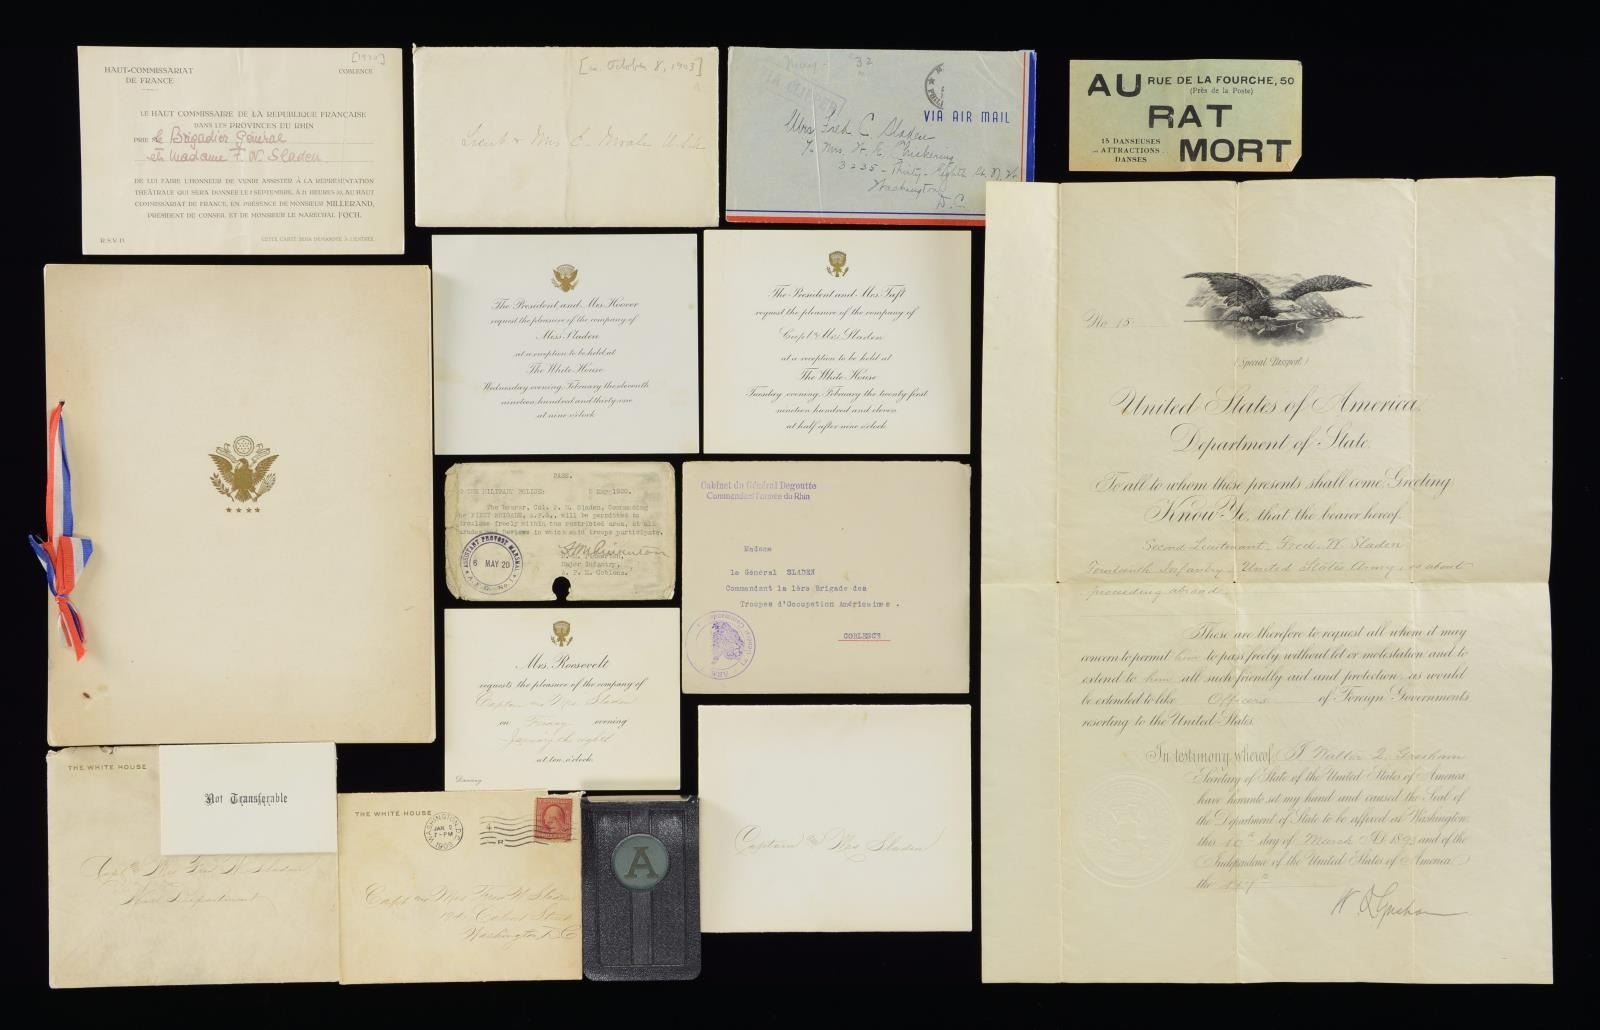 [1920]
HAUT-COMMISSARIAT
DE FRANCE
COBLENCE
LE HAUT COMMISSAIRE DE LA REPUBLIQUE FRANÇAISE
DANS LES PROVINCES DU RHIN
PRIE le Brigadier Général
et Madame F. W. Sladen
DE LUI FAIRE L'HONNEUR DE VENIR ASSISTER À LA REPRÉSENTATION
THÉÂTRALE QUI SERA DONNÉE LE SEPTEMBRE, À 21 HEURES 30, AU HAUT
COMMISSARIAT DE FRANCE, EN PRÉSENCE DE MONSIEUR MILLERAND,
PRÉSIDENT DU CONSEIL ET DE MONSIEUR LE MARÉCHAL FOCH.
R.S.V.P.
CETTE CARTE SERA DEMANDÉE À L'ENTRÉE
October 8, 1903]
Lieut & Mrs E.
May - 32
VIA AIR MAIL
Mrs Fred C. Sladen
% Mrs. Chickering
3235 - Thirty-Eighth St. N.W.
Washington
D.C.
AU RUE DE LA FOURCHE, 50
(Près de la Poste)
RAT
15 DANSEUSES
ATTRACTIONS
DANSES
MORT
The President and Mrs. Hoover
request the pleasure of the company of
Miss Sladen
at a reception to be held at
The White House
Wednesday evening, February the eleventh
nineteen hundred and thirty-one
at nine o'clock
The President and Mrs. Taft
request the pleasure of the company of
Capt & Mrs Sladen
at a reception to be held at
The White House
Tuesday evening, February the twenty-first
nineteen hundred and eleven
at half after nine o'clock
No 15
(Special Passport.)
United States of America,
Department of State.
To all to whom these presents shall come, Greeting
Know Ye, that the bearer hereof,
Second Lieutenant, Fred. W. Sladen
Fourteenth Infantry - United States Army, is about
proceeding abroad.
These are therefore to request all whom it may
concern to permit him to pass freely without let or molestation and to
extend to him all such friendly aid and protection, as would
be extended to like Officers of Foreign Governments
resorting to the United States.
In testimony whereof, I Walter Q. Gresham
Secretary of State of the United States of America,
have hereunto set my hand and caused the Seal of
the Department of State to be affixed at Washington,
this 10th day of March A.D. 1893 and of the
Independence of the United States of America
the 117th
W Q Gresham
PASS.
TO THE MILITARY POLICE: 5 May 1920.
The Bearer, Col. F. W. Sladen, Commanding
the FIRST BRIGADE, A.F.G., will be permitted to
circulate freely within the restricted area, at all
Parades and Reviews in which said troops participate.
Major Infantry,
A. P. M. Coblenz.
ASSISTANT PROVOST MARSHAL
6 MAY 20
Cabinet du Général Degoutte
Commandant l'Armée du Rhin
Madame
le Général SLADEN
Commandant la 1ère Brigade des
Troupes d'Occupation Américaines.
COBLENCE
Mrs. Roosevelt
requests the pleasure of the company of
Captain and Mrs Sladen
on Friday evening
January the eighth
at ten o'clock
Dancing
THE WHITE HOUSE
Not Transferable
Capt and Mrs Fred W Sladen
War Department
THE WHITE HOUSE
WASHINGTON, D.C.
JAN 2
7-PM
1909
4
R
Capt and Mrs Fred W Sladen
Street
Washington, D.C.
A
Captain and Mrs Sladen